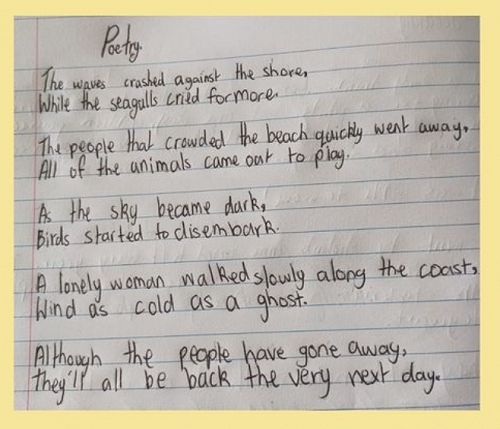 Poetry.
The waves crashed against the shore,
While the seagulls cried for more.
The people that crowded the beach quickly went away,
All of the animals came out to play.
As the sky became dark,
Birds started to disembark.
A lonely woman walked slowly along the coast,
Wind as cold as a ghost.
Although the people have gone away,
they'll all be back the very next day.